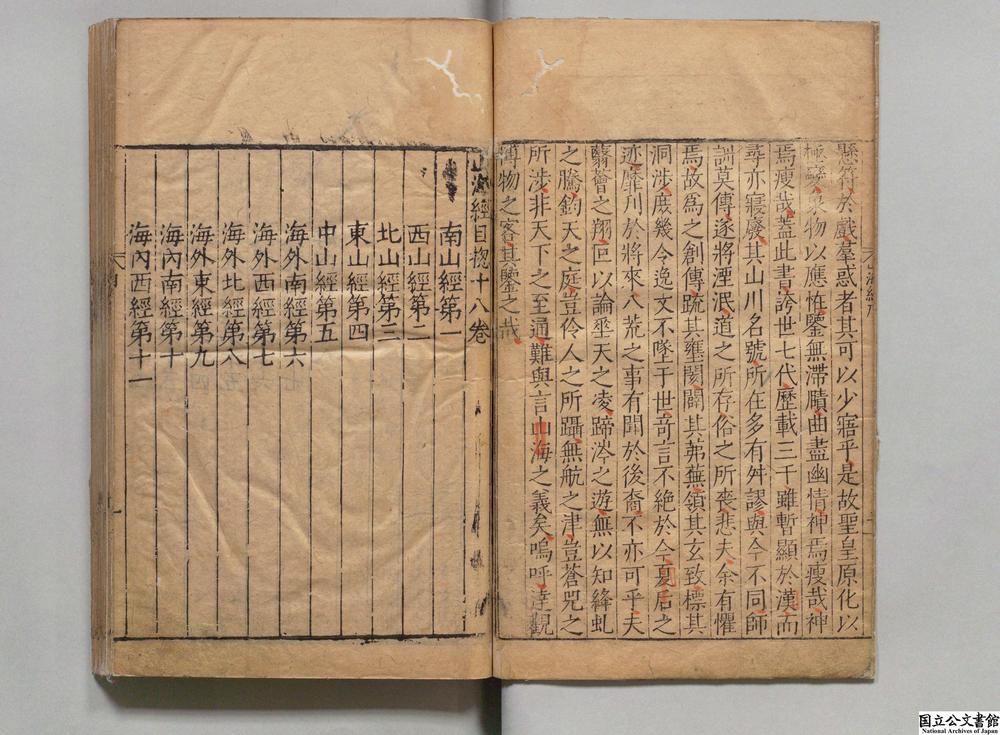 懸符於戲羣惑者其可以少寤乎是故聖皇原化以
極變象物以應怪鑒無滯賾曲盡幽情神焉廋哉神
焉廋哉蓋此書誇世七代歷載三千雖暫顯於漢而
尋亦寢廢其山川名號所在多有舛謬與今不同師
訓莫傳遂將湮泯道之所存俗之所喪悲夫余有懼
焉故為之創傳疏其壅閡闢其茀蕪領其玄致標其
洞涉庶幾令逸文不墜于世奇言不絕於今夏后之
迹靡刋於將來八荒之事有聞於後裔不亦可乎夫
蘙薈之翔叵以論垂天之凌蹄涔之遊無以知絳虬
之騰鈞天之庭豈伶人之所躡無航之津豈蒼兕之
所涉非天下之至通難與言山海之義矣嗚呼達觀
博物之客其鑒之哉
山海經目揔十八卷
南山經第一
西山經第二
北山經第三
東山經第四
中山經第五
海外南經第六
海外西經第七
海外北經第八
海外東經第九
海內南經第十
海內西經第十一
国立公文書館
National Archives of Japan